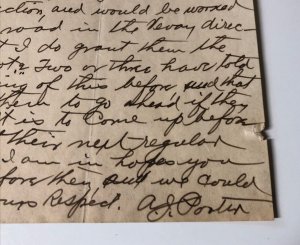 ction and would be worded
road in the Nevay direc-
t I do grant them the
t? Two or three have told
ing of this before, and that
them to go ahead if they
it is to come up before
their next regular
I am in hopes you
fore then and we could
urs Respect. A.J. Porter